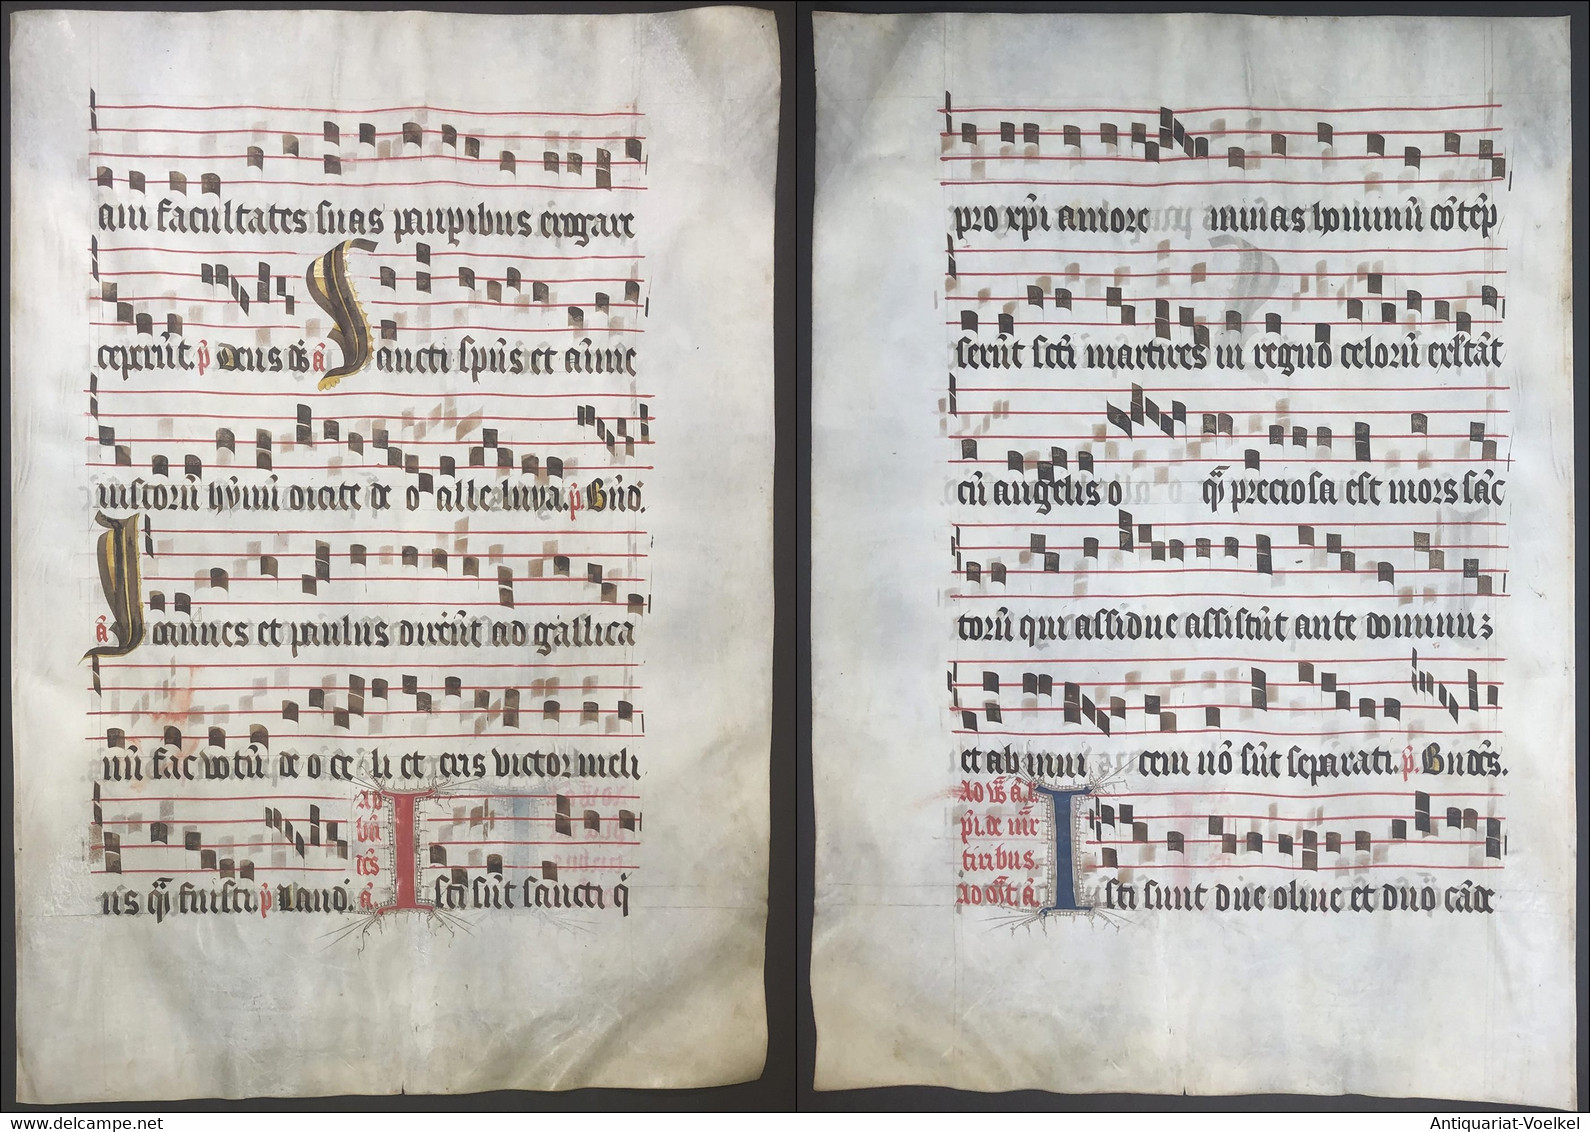 am facultates suas paupibus erogare
ceperūt. p̄ Deus ds̄ ā Sancti spūs et aīme
iustorū hymnū dicite deo alleluya. p̄. Bn̄d.
ā Johannes et paulus dixerūt ad gallica
nū fac votū deo celi et eris victor meli
us qm̄ fuisti p̄ Laud.
Ad
bn̄
dc̄s
ā.
Isti sūt sancti q̄
pro xp̄i amore minas hominū cōtēp
serūt scti martires in regno celorū exltāt
cū angelis o q̄ preciosa est mors sāc
torū qui assidue assistūt ante dominuz
et ab inui cem nō sūt separati. p̄. Bn̄dc̄s.
Ad vs̄ ā. t
p̄i. de mr̄
tiribus.
Ad oct. ā.
Isti sunt due oliue et duo cāde
Antiquariat-Voelkel